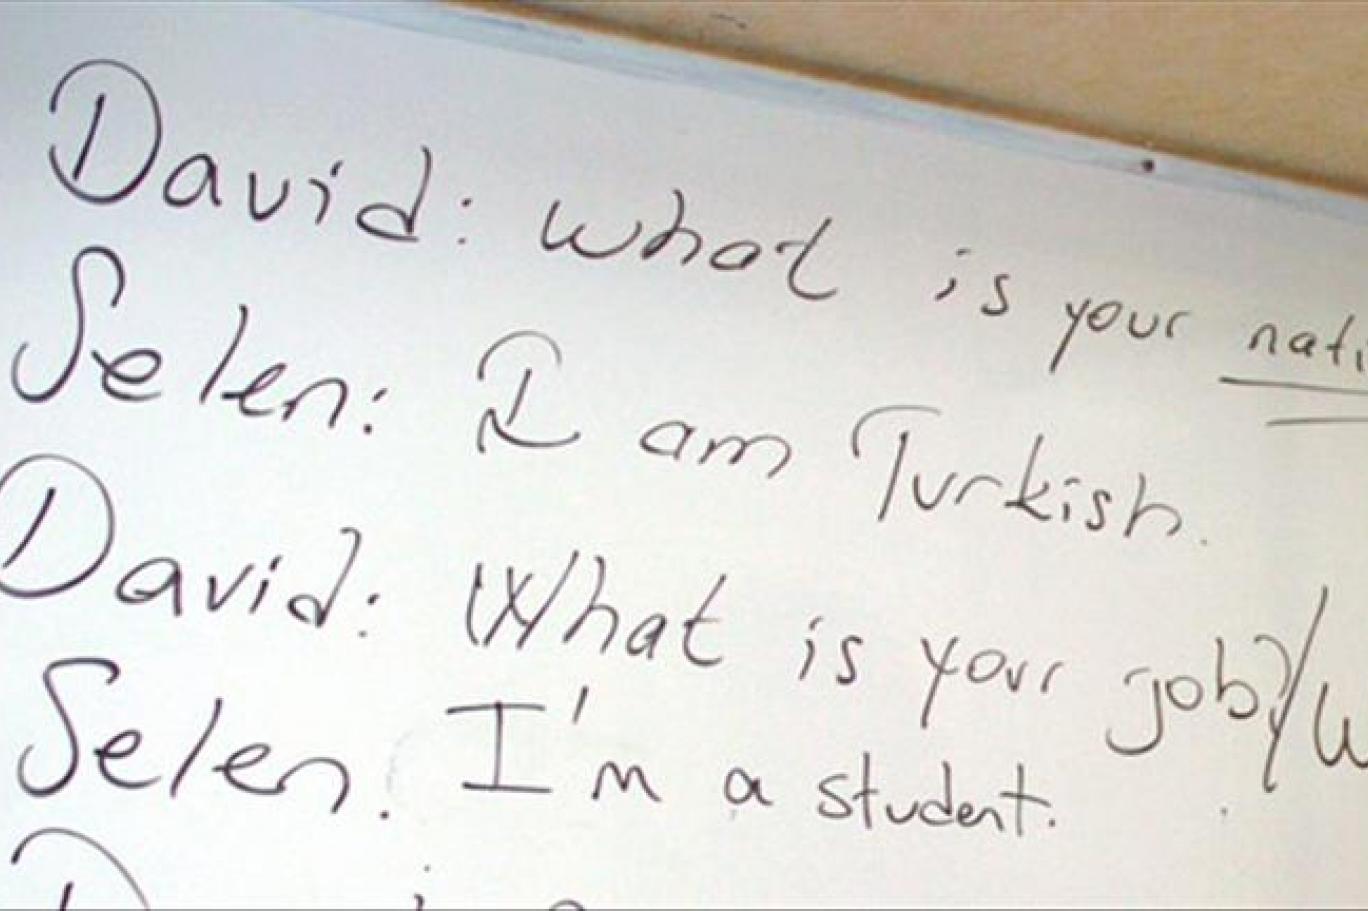 David: What is your nati
Selen: I am Turkish.
David: What is your job?/W
Selen. I'm a student.